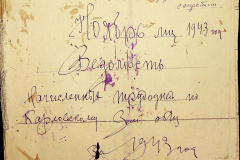 Ноябрь мц 1943 года
Ведомость
начисленных трудодней по
Карловскому
за 1943 год